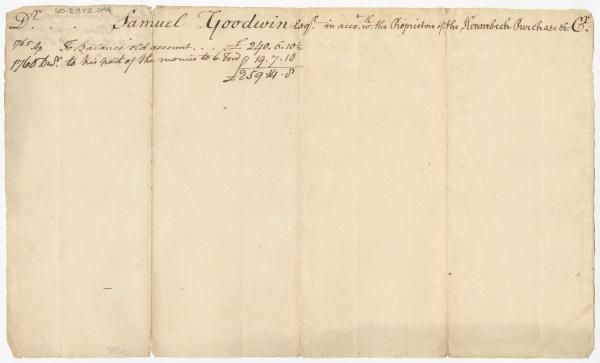 Dr. Samuel Goodwin Esqr. in acco.t wth. the Proprietors of the Kennebeck Purchase &c. Cr.
1765 To Balance old account . . . £ 240.6.10½
1766 Decr. to his part of the monies to G. Ford 19.7.10
£259.14.8